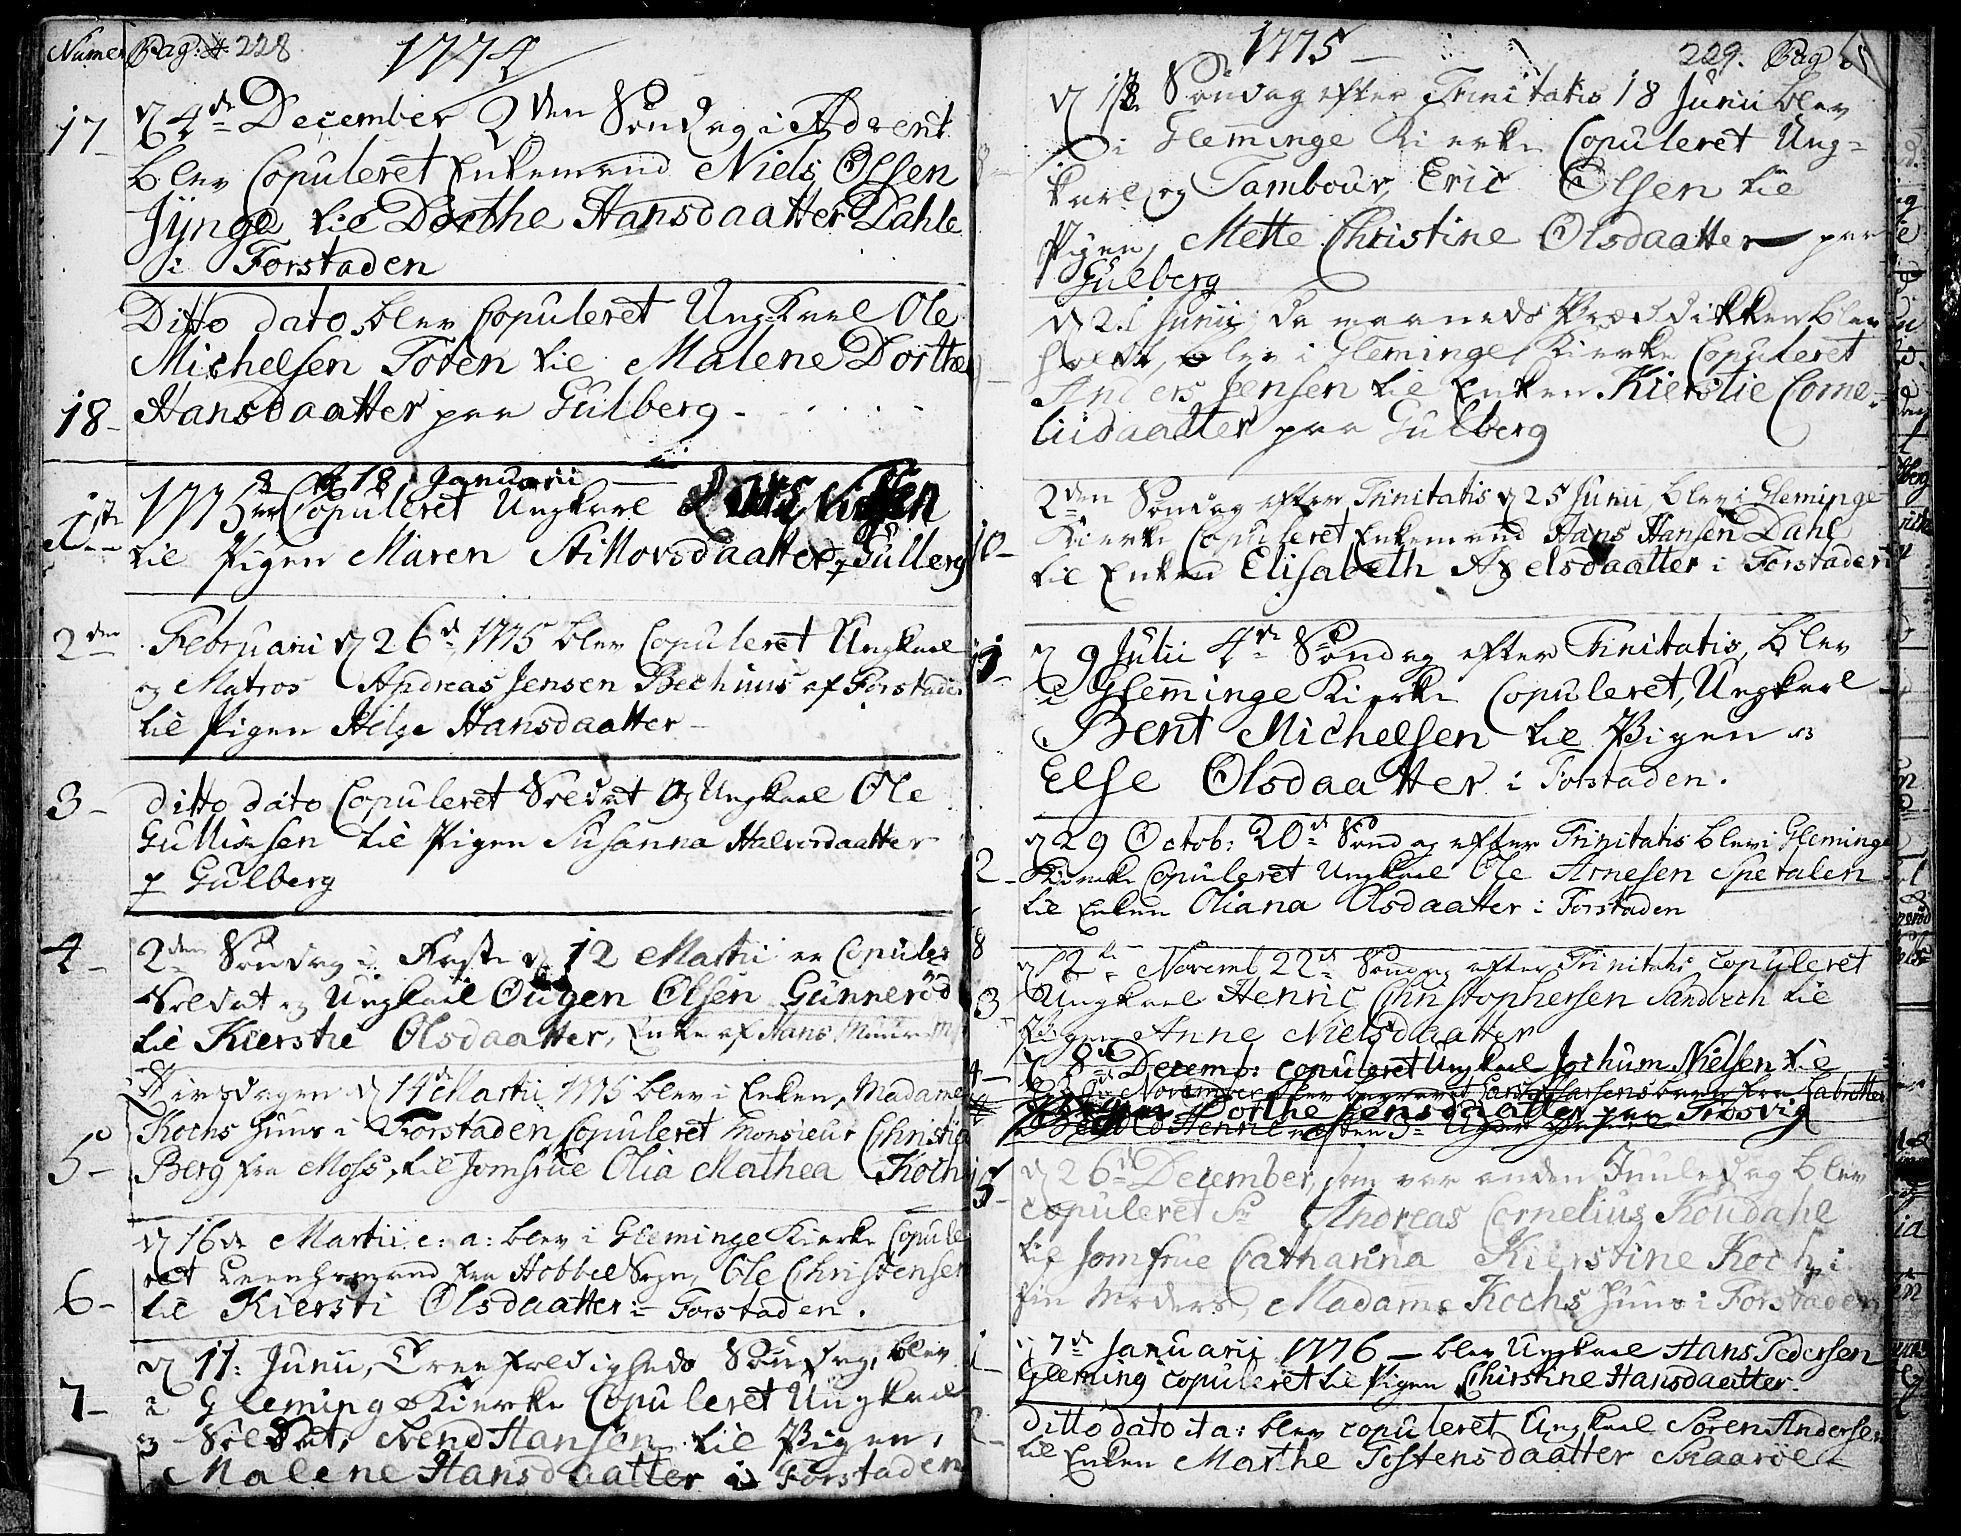 Numer Pag: 228 1774
17 d 4de December 2den Søndag i Advent
blev Copuleret Enkemand Niels Olsen
Jÿnge til Dorthe Hansdaatter Dahle
i Forstaden
Ditto dato blev Copuleret Ungkarl Ole
Michelsen Toten til Malene Dorthe
18 Hansdaatter paa Gulberg
1ste 1775 d 18 Januarii
er Copuleret Ungkarl
til Pigen Maren Stillovsdaatter Gulberg
2den Februarii d 26d 1775 blev Copuleret Ungkarl
og Matros Andreas Jensen Bechuus af Forstaden
til Pigen Helge Hansdaatter
3 ditto dato Copuleret Soldat og Ungkarl Ole
Gullichsen til Pigen Susanna Halvorsdaatter
p Gulberg
4 2den Søndag i Faste d 12 Martii er Copuler
Soldat og Ungkarl Ougen Olsen Gunnerød
til Kierstie Olsdaatter, Enke af Hans
Tirsdagen d 14d Martii 1775 blev i Enken, Madame
Kochs Huus i Forstaden Copuleret Monsieur Christia
5 Berg fra Moss, til Jomfrue Olia Mathea Koch
d 16de Martii e: a: blev i Gleminge Kierke Copule
ret fra Hobbel Sogn, Ole Christensen
6 til Kiersti Olsdaatter i Forstaden.
d 11: Junii, Treefoldigheds Søndag, blev
7 i Gleminge Kierke Copuleret Ungkarl
og Soldat, Svend Hansen til Pigen,
Malene Hansdaatter i Forstaden
1775 229. Pag
d 1ste Søndag efter Trinitatis 18 Junii blev
i Gleminge Kierke Copuleret Ung=
karl og Tambour, Eric Olsen til
Pigen, Mette Christine Olsdaatter paa
Gulberg
d 21 Junii, da maaneds Prædikken blev
holdt, blev i Gleminge Kierke Copuleret
Anders Jensen til Enken Kierstie Corne=
liidaatter paa Gulberg
2den Søndag efter Trinitatis d 25 Junii, blev i Gleminge
10 Kierke Copuleret Enkemand Hans Hansen Dahl
til Enken Elisabeth Axelsdaatter i Forstaden
d 9 Julii 4de Søndag efter Trinitatis, blev
i Gleminge Kierke Copuleret, Ungkarl
Bent Michelsen til Pigen
Else Olsdaatter i Forstaden.
d 29 Octob: 20d Søndag efter Trinitatis blev i Gleminge
2 Kierke Copuleret Ungkarl Ole Arnesen Spetalen
til Enken Oliana Olsdaatter i Forstaden
d 12te Novemb 22d Søndag efter Trinitatis copuleret
3 Ungkarl Henric Christophersen Sandvech til
Pigen Anne Nielsdaatter
4 d 8de Decemb: copuleret Ungkarl Jochum Nielsen til
Dorthe Jensdaatter paa Trosvig
5 d 26d December, som var anden Juuledag blev
copuleret Sr Andreas Cornelius Koudahl
til Jomfrue Catharina Kierstine Koch, i
sin Moders, Madame Kochs Huus i Forstaden
1 d 7de Januarii 1776 – blev Ungkarl Hans Pedersen
Gleming copuleret til Pigen Chirstine Hansdaatter.
2 ditto dato it a: blev copuleret Ungkarl Søren Andersen
til Enken Marthe Tostensdaatter Skaarøe